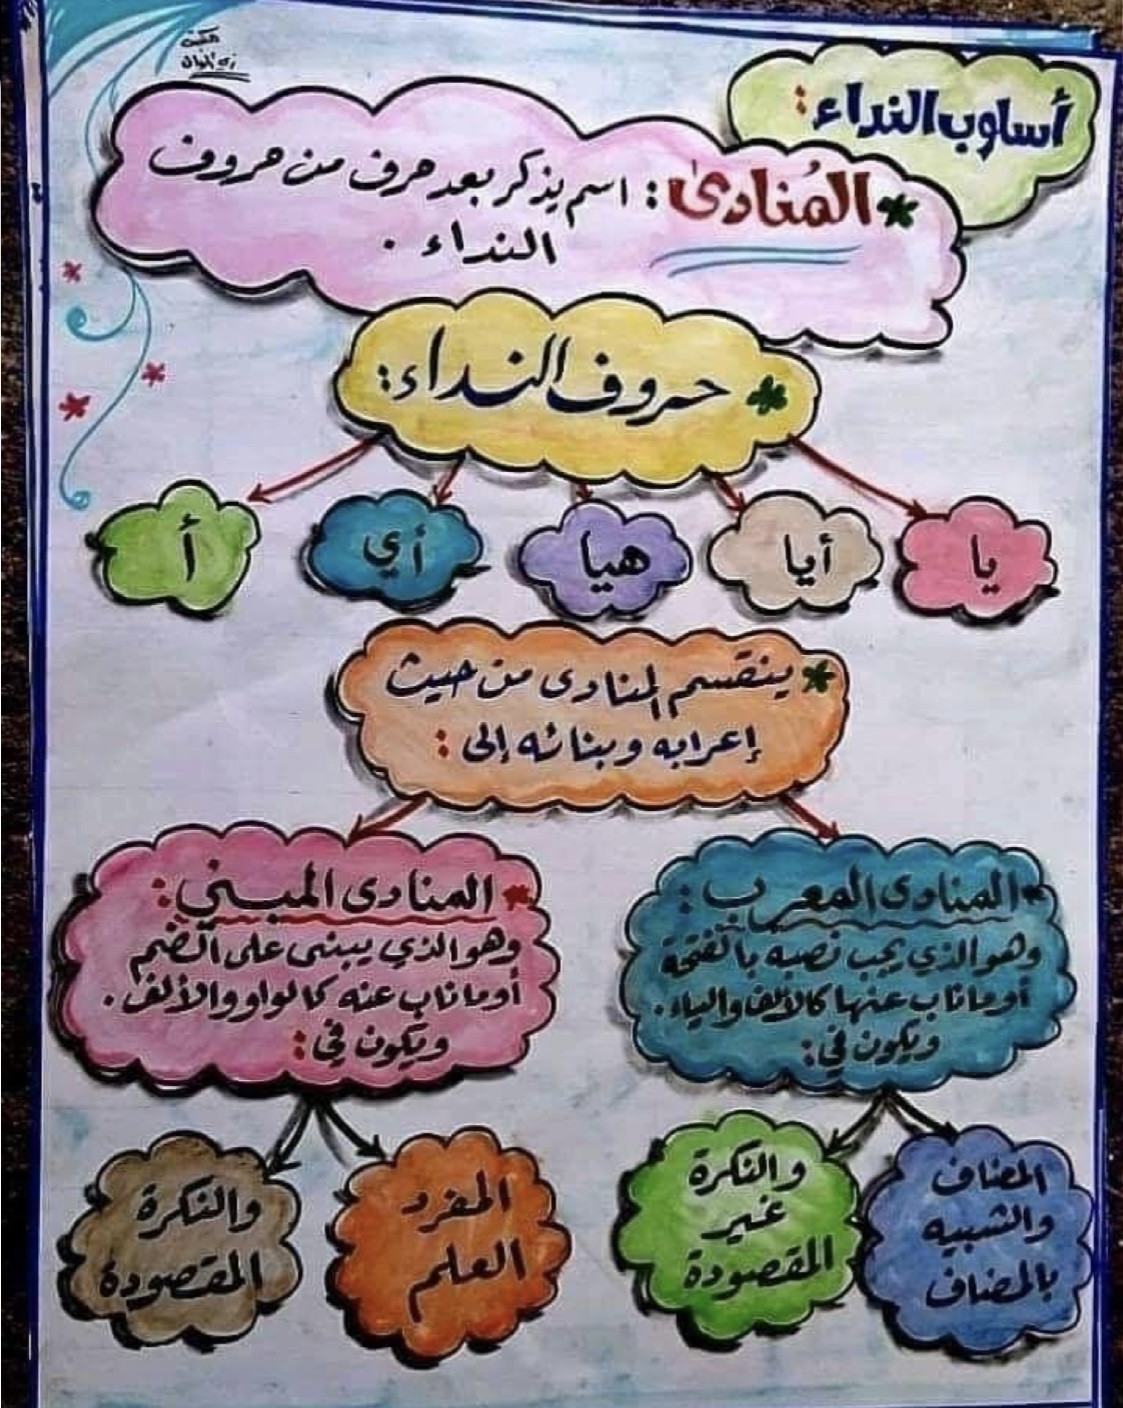 أسلوب النداء:
* المُنادىٰ: اسم يذكر بعد حرف من حروف
النداء.
* حروف النداء:
يا
أيا
هيا
أي
أ
* ينقسم المنادى من حيث
إعرابه وبنائه إلى:
* المنادى المعرب:
وهو الذي يجب نصبه بالفتحة
أو ما ناب عنها كالألف والياء.
ويكون في:
المضاف
والشبيه
بالمضاف
والنكرة
غير
المقصودة
* المنادى المبني:
وهو الذي يبنى على الضم
أو ما ناب عنه كالواو والألف.
ويكون في:
المفرد
العلم
والنكرة
المقصودة